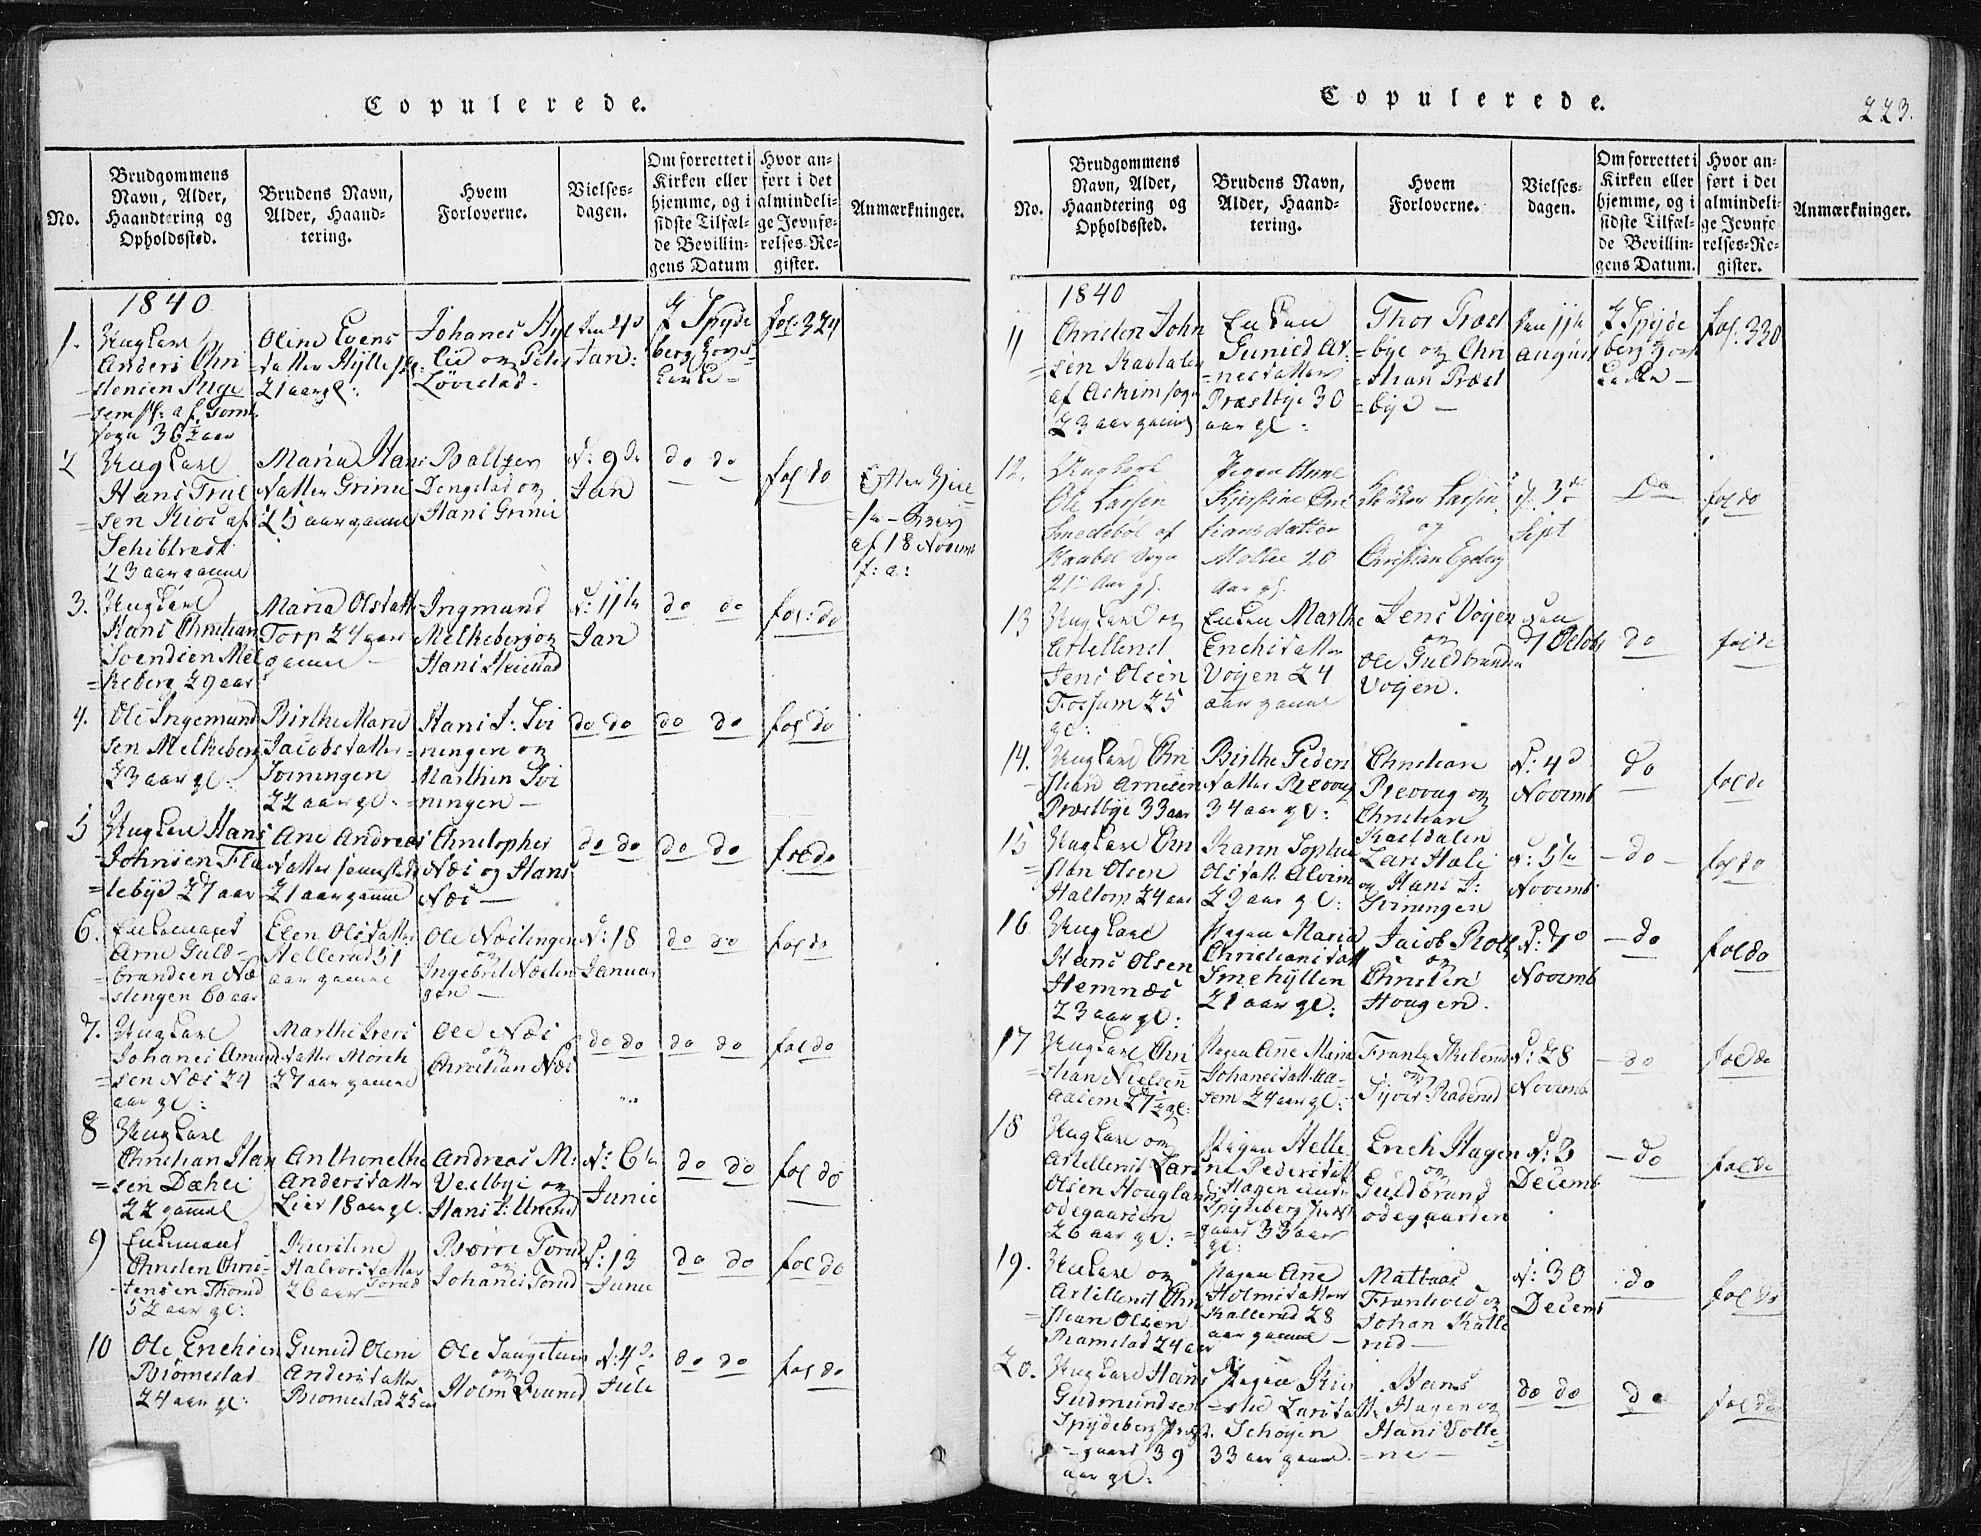 Copulerede.
No.
Brudgommens
Navn, Alder,
Haandtering og
Opholdssted.
Brudens Navn,
Alder, Haand-
tering.
Hvem
Forloverne.
Vielses-
dagen.
Om forrettet i
Kirken eller
hjemme, og i
sidste Tilfæl-
de Bevillin-
gens Datum
Hvor an-
ført i det
almindeli-
ge Jevnfø-
relses-Re-
gister.
Anmærkninger.
1840
1.
Ungkarl
Anders Chri
stensen
sogn 36½ aar
Oline Evens
datter Hylle
21 aar gl:
Johanes Hyl
lie og Peter
Løvestad.
Jan:
I Spyde
berg Hoved
kirke
fol. 324
2
Ungkarl
Hans Trul
sen Kios af
Schibtvedt
23 aar gamel
Maria Hans
datter Grimi
25 aar gamel
Baltzer
Dengstad og
Hans Grimi
d: 9de
Jan
do do
fol do
af 18 Novemb
f: a:
3.
Ungkarl
Hans Christian
Svendsen Mel
keberg 29 aar
Maria Olsdatter
Torp 24 aar
gamel
Ingmund
Melkeberg og
Hans Skiestad
d: 11te
Jan
do do
fol: do
4.
Ole Ingemund
sen Melkeberg
23 aar gl.
Birthe Marie
Jacobsdatter
Sviningen
22 aar gl.
Hans J: Svi
ningen og
Marthin Svi
ningen
do do
do do
fol do
5
Ungkarl Hans
Johnsen Fla
tebye 27 aar
Ane Andreas
datter
21 aar gamel
Christopher
Næs og Hans
Næs
do do
do do
fol do
6.
Enkemand
Arne Guld-
brandsen Næ
stengen 60 aar
Elen Olsdatter
Hellerud 51
aar gamel
Ole Næstengen
og
Ingebret Nøsten
gen
d: 18
Januar
do do
fol do
7.
Ungkarl
Johanes Amund
sen Næs 24
aar gl:
Marthe Ivers
datter Morch
27 aar gamel
Ole Næs
og
Christian Næs
do do
do do
fol do
8
Ungkarl
Christian Han
sen Dæhei
22 gammel
Anthonethe
Andersdatter
Lier 18 aar gl.
Andreas M:
Veelbye og
Hans J: Unerud
d: 6te
Junie
do do
fol do
9
Enkemand
Christen Chris-
tensen Thorud
52 aar gl:
Kierstine
Halvorsdatter
26 aar Torud
Børre Torud
og
Johanes Torud
d: 13
Junie
do do
fol do
10
Ole Erichsen
Bromestad
24 aar gl:
Gunild Oline
Andersdatter
Bromestad 25 aar
Ole Saugstuen
og
Holm Lound
d: 4de
Jule
do do
fol do
Copulerede.
223.
No.
Brudgommens
Navn, Alder,
Haandtering og
Opholdssted.
Brudens Navn,
Alder, Haand-
tering.
Hvem
Forloverne.
Vielses-
dagen.
Om forrettet i
Kirken eller
hjemme, og i
sidste Tilfæl-
de Bevillin-
gens Datum.
Hvor an-
ført i det
almindeli-
ge Jevnfø
relses-Re-
gister.
Anmærkninger.
1840
11
Christen John
sen Kastalen
af Askim sogn
23 aar gamel
Enken
Gunild Ar-
nesdatter
Præstbye 30
aar gl:
Thor Præst
bye og Chri
stian Præst
bye
den 11te
August
I Spyde
berg Hov
kirke
fol. 330
12.
Ungkarl
Ole Larsen
Smedsbøl af
Kraabøl Sogn
Pigen Anne
Kjerstine Chri
stiansdatter
Mollie 20
aar gl.
Larsen
og
Christian Egeberg
d. 3de
Sept
Do
fol do
13
Ungkarl og
Artillerist
Jens Olsen
Fossum 25
gl:
Enken Marthe
Erichsdatter
Vøyen 24
aar gamel
Jens Vøyen
og
Ole Guldbrandsen
Vøyen.
den
7 Octob
do
fol do
14.
Ungkarl Chri
stian Arnesen
Præstbye 33 aar
Birthe Peders
datter Revoug
34 aar gl:
Christian
Revoug og
Christian
Kastdalen
d: 4de
Novemb
do
fol do
15
Ungkarl Chri
stian Olsen
Haltom 24 aar
Karen Sophie
Olsdatt. Alvim
23 aar gl:
Lars Hale
og Hans J:
Sviningen
d: 5te
Novemb:
do
fol do
16
Ungkarl
Hans Olsen
Hemnæs
23 aar gl:
Pigen Maria
Christiansdatt
Smehytten
21 aar gl:
Jacob Rolf
og
Christen
Hougen.
d: 7de
Novemb
do
fol do
17
Ungkarl Chri
stian Nielsen
Aasem 27½ gl:
Pigen Ane Maria
Johanesdatt Aa-
sem 24 aar gl:
Frantz Skibnes
og
Syver Raderud
d: 28
Novemb
do
fol do
18
Ungkarl og
Artillerist Lars
Olsen Hougland
ødegaarden
26 aar gl:
Pigen Helle
ne Pedersdatt
Hagen
Spydeberg Præst
gaard 33 aar
gl:
Erich Hagen
og
Guldbrand
ødegaarden
d: 2
Decemb
do
fol do
19.
Ungkarl og
Artillerist Chri
stian Olsen
Ramstad 24 aar
Pigen Ane
Holmsdatter
Kallerud 28
aar gamel
Mattias
Fronhold og
Johan Kalle
rud
d: 30
Decemb
do
fol do
20.
Ungkarl Hans
Gudmundsen
Spydeberg Præst
gaard 39
aar gl:
Pigen Kier
stie Larsdatt
Schøyen
33 aar gamel.
Hans
Hagen og
Hans Volle
ne
do do
do
fol do